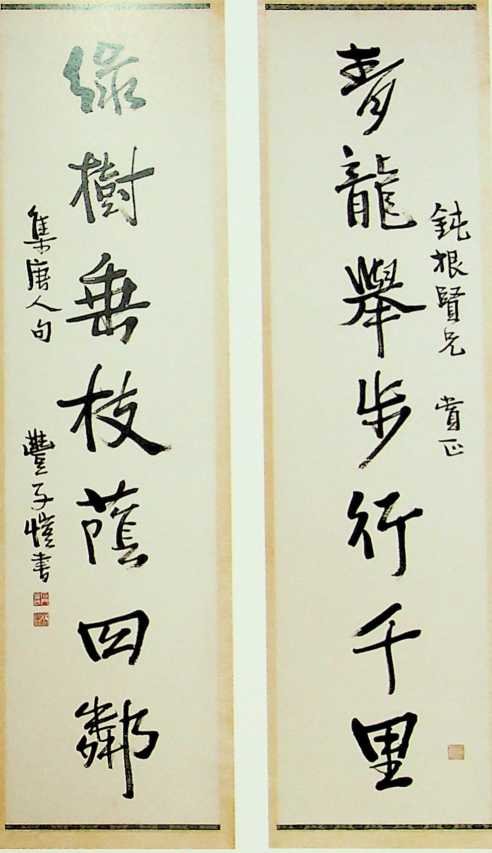 青龍舉步行千里
鈍根賢兄 賞正
綠樹垂枝蔭四鄰
集唐人句
豐子愷書